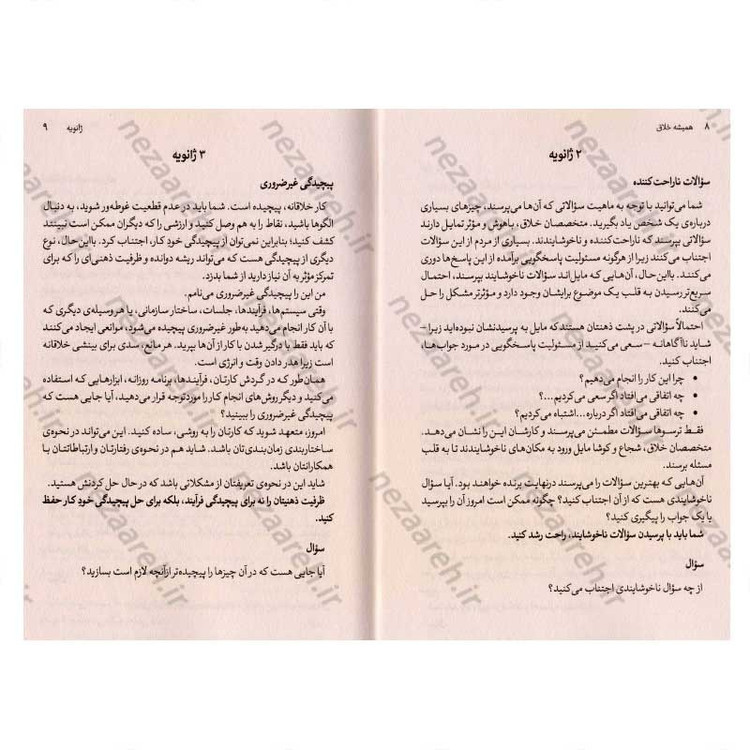 ۸ همیشه خلاق
۲ ژانویه
سؤالات ناراحت‌کننده
شما می‌توانید با توجه به ماهیت سؤالاتی که آن‌ها می‌پرسند، چیزهای بسیاری
درباره‌ی یک شخص یاد بگیرید. متخصصان خلاق، باهوش و مؤثر تمایل دارند
سؤالاتی بپرسند که ناراحت‌کننده و ناخوشایندند. بسیاری از مردم از این سؤالات
اجتناب می‌کنند زیرا از هرگونه مسئولیت پاسخگویی برآمده از این پاسخ‌ها دوری
می‌کنند. بااین‌حال، آن‌هایی که مایل‌اند سؤالات ناخوشایند بپرسند، احتمال
سریع‌تر رسیدن به قلب یک موضوع برایشان وجود دارد و مؤثرتر مشکل را حل
می‌کنند.
احتمالاً سؤالاتی در پشت ذهنتان هستند که مایل به پرسیدنشان نبوده‌اید زیرا –
شاید ناآگاهانه – سعی می‌کنید از مسئولیت پاسخگویی در مورد جواب‌ها،
اجتناب کنید.
• چرا این کار را انجام می‌دهیم؟
• چه اتفاقی می‌افتاد اگر سعی می‌کردیم...؟
• چه اتفاقی می‌افتاد اگر درباره... اشتباه می‌کردیم؟
فقط ترسوها سؤالات مطمئن می‌پرسند و کارشان این را نشان می‌دهد.
متخصصان خلاق، شجاع و کوشا مایل ورود به مکان‌های ناخوشایندند تا به قلب
مسئله برسند.
آن‌هایی که بهترین سؤالات را می‌پرسند درنهایت برنده خواهند بود. آیا سؤال
ناخوشایندی هست که از آن اجتناب کنید؟ چگونه ممکن است امروز آن را بپرسید
یا یک جواب را پیگیری کنید؟
شما باید با پرسیدن سؤالات ناخوشایند، راحت رشد کنید.
سؤال
از چه سؤال ناخوشایندی اجتناب می‌کنید؟
ژانویه ۹
۳ ژانویه
پیچیدگی غیرضروری
کار خلاقانه، پیچیده است. شما باید در عدم قطعیت غوطه‌ور شوید، به دنبال
الگوها باشید، نقاط را به هم وصل کنید و ارزشی را که دیگران ممکن است نبینند
کشف کنید؛ بنابراین نمی‌توان از پیچیدگی خود کار، اجتناب کرد. بااین‌حال، نوع
دیگری از پیچیدگی هست که می‌تواند ریشه دوانده و ظرفیت ذهنی‌ای را که برای
تمرکز مؤثر به آن نیاز دارید از شما بدزد.
من این را پیچیدگی غیرضروری می‌نامم.
وقتی سیستم‌ها، فرآیندها، جلسات، ساختار سازمانی، یا هر وسیله‌ی دیگری که
با آن کار انجام می‌دهید به‌طور غیرضروری پیچیده می‌شود، موانعی ایجاد می‌کنند
که باید فقط با درگیر شدن با کار از آن‌ها بپرید. هر مانع، سدی برای بینشی خلاقانه
است زیرا هدر دادن وقت و انرژی است.
همان‌طور که در گردش کارتان، فرآیندها، برنامه روزانه، ابزارهایی که استفاده
می‌کنید و دیگر روش‌های انجام کار را موردتوجه قرار می‌دهید، آیا جایی هست که
پیچیدگی غیرضروری را ببینید؟
امروز، متعهد شوید که کارتان را به روشی، ساده کنید. این می‌تواند در نحوه‌ی
ساختاربندی زمان‌بندی‌تان باشد. شاید هم در نحوه‌ی رفتارتان و ارتباطاتتان با
همکارانتان باشد.
شاید این در نحوه‌ی تعریفتان از مشکلاتی باشد که در حال حل کردنش هستید.
ظرفیت ذهنیتان را نه برای پیچیدگی فرآیند، بلکه برای حل پیچیدگی خودِ کار حفظ
کنید.
سؤال
آیا جایی هست که در آن چیزها را پیچیده‌تر ازآنچه لازم است بسازید؟
nezaareh.ir
nezaareh.ir
nezaareh.ir
nezaareh.ir
nezaareh.ir
nezaareh.ir